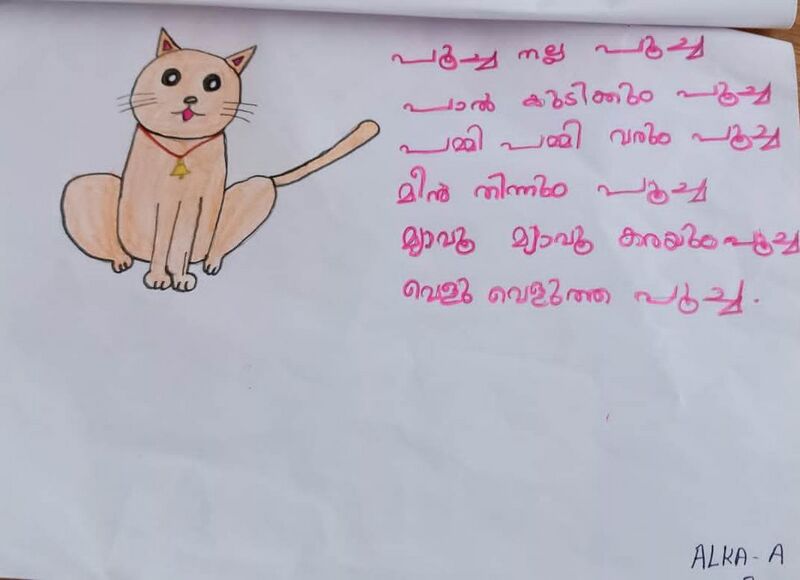 പൂച്ച നല്ല പൂച്ച
പാൽ കുടിക്കും പൂച്ച
പമ്മി പമ്മി വരും പൂച്ച
മീൻ തിന്നും പൂച്ച
മ്യാവൂ മ്യാവൂ കരയും പൂച്ച
വെളു വെളുത്ത പൂച്ച.
ALKA - A